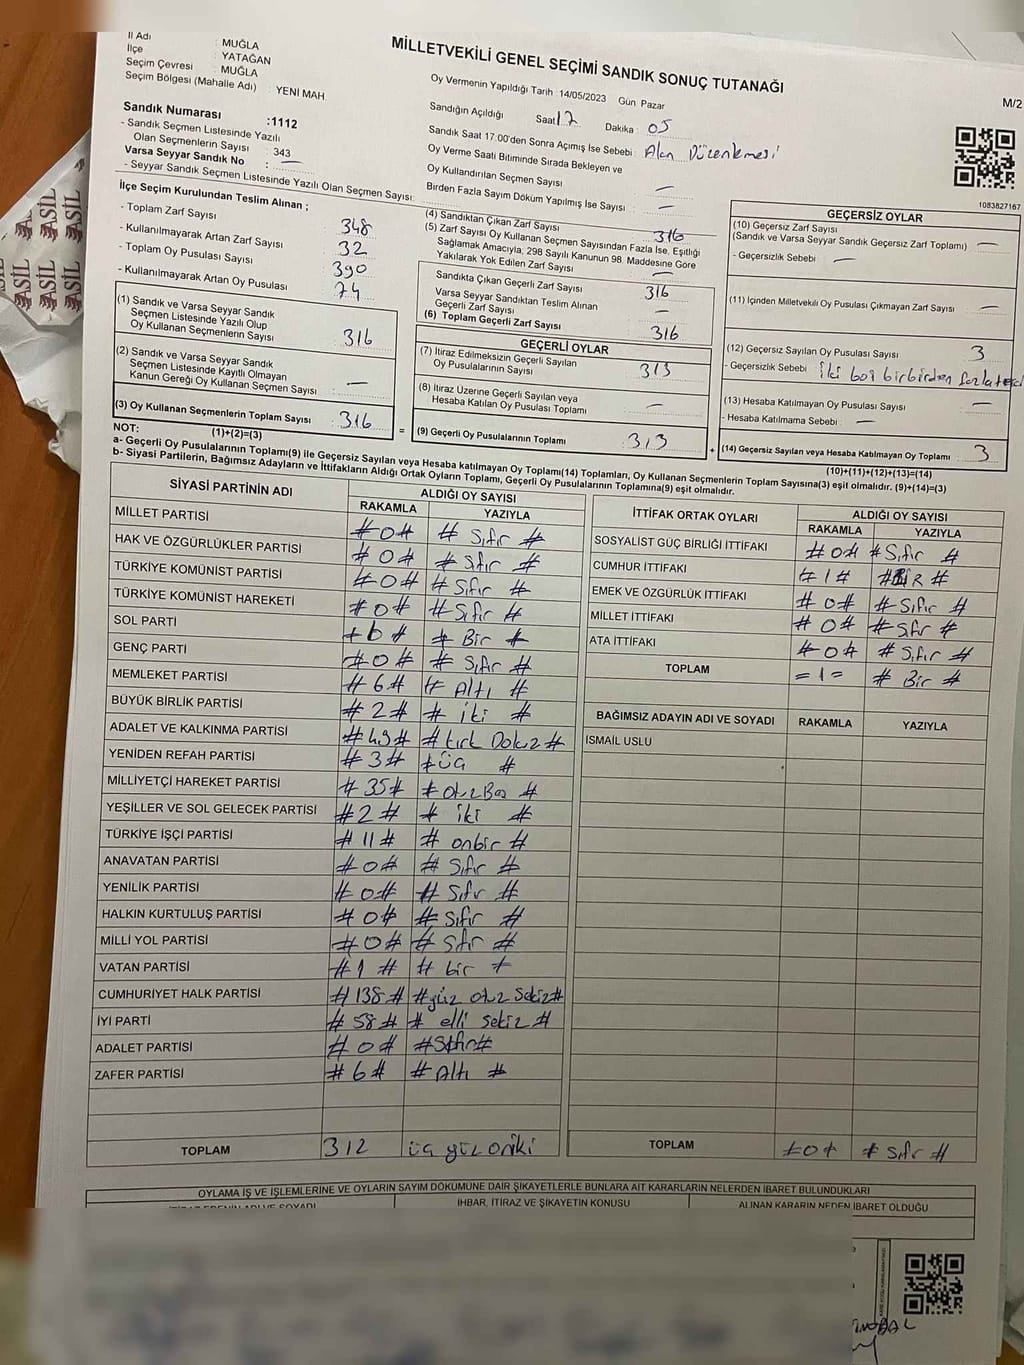 İl Adı : MUĞLA
İlçe : YATAĞAN
Seçim Çevresi : MUĞLA
Seçim Bölgesi (Mahalle Adı) : YENİ MAH
MİLLETVEKİLİ GENEL SEÇİMİ SANDIK SONUÇ TUTANAĞI
M/2
Oy Vermenin Yapıldığı Tarih :14/05/2023 Gün Pazar
Sandığın Açıldığı Saat 17 Dakika : 05
Sandık Saat 17.00'den Sonra Açımış İse Sebebi : Alan Düzenlemesi
Oy Verme Saati Bitiminde Sırada Bekleyen ve
Oy Kullandırılan Seçmen Sayısı : —
Birden Fazla Sayım Döküm Yapılmış İse Sayısı : —
Sandık Numarası :1112
- Sandık Seçmen Listesinde Yazılı
Olan Seçmenlerin Sayısı : 343
Varsa Seyyar Sandık No : —
- Seyyar Sandık Seçmen Listesinde Yazılı Olan Seçmen Sayısı:
İlçe Seçim Kurulundan Teslim Alınan ;
- Toplam Zarf Sayısı : 348
- Kullanılmayarak Artan Zarf Sayısı : 32
- Toplam Oy Pusulası Sayısı : 390
- Kullanılmayarak Artan Oy Pusulası : 74
(1) Sandık ve Varsa Seyyar Sandık
Seçmen Listesinde Yazılı Olup
Oy Kullanan Seçmenlerin Sayısı : 316
(2) Sandık ve Varsa Seyyar Sandık
Seçmen Listesinde Kayıtlı Olmayan
Kanun Gereği Oy Kullanan Seçmen Sayısı : —
(3) Oy Kullanan Seçmenlerin Toplam Sayısı : 316
(1)+(2)=(3)
(4) Sandıktan Çıkan Zarf Sayısı : 316
(5) Zarf Sayısı Oy Kullanan Seçmen Sayısından Fazla İse, Eşitliği
Sağlamak Amacıyla, 298 Sayılı Kanunun 98. Maddesine Göre
Yakılarak Yok Edilen Zarf Sayısı : —
Sandıkta Çıkan Geçerli Zarf Sayısı : 316
Varsa Seyyar Sandıktan Teslim Alınan
Geçerli Zarf Sayısı : —
(6) Toplam Geçerli Zarf Sayısı : 316
GEÇERLİ OYLAR
(7) İtiraz Edilmeksizin Geçerli Sayılan
Oy Pusulalarının Sayısı : 313
(8) İtiraz Üzerine Geçerli Sayılan veya
Hesaba Katılan Oy Pusulası Toplamı : —
= (9) Geçerli Oy Pusulalarının Toplamı : 313 +
1083827167
GEÇERSİZ OYLAR
(10) Geçersiz Zarf Sayısı
(Sandık ve Varsa Seyyar Sandık Geçersiz Zarf Toplamı) : —
- Geçersizlik Sebebi : —
(11) İçinden Milletvekili Oy Pusulası Çıkmayan Zarf Sayısı : —
(12) Geçersiz Sayılan Oy Pusulası Sayısı : 3
- Geçersizlik Sebebi : iki boş birbirden fazla
(13) Hesaba Katılmayan Oy Pusulası Sayısı : —
- Hesaba Katılmama Sebebi : —
(14) Geçersiz Sayılan veya Hesaba Katılmayan Oy Toplamı : 3
(10)+(11)+(12)+(13)=(14)
NOT:
a- Geçerli Oy Pusulalarının Toplamı(9) ile Geçersiz Sayılan veya Hesaba katılmayan Oy Toplamı(14) Toplamları, Oy Kullanan Seçmenlerin Toplam Sayısına(3) eşit olmalıdır. (9)+(14)=(3)
b- Siyasi Partilerin, Bağımsız Adayların ve İttifakların Aldığı Ortak Oyların Toplamı, Geçerli Oy Pusulalarının Toplamına(9) eşit olmalıdır.
SİYASİ PARTİNİN ADI
ALDIĞI OY SAYISI
RAKAMLA YAZIYLA
MİLLET PARTİSİ #0# # Sıfır #
HAK VE ÖZGÜRLÜKLER PARTİSİ #0# # Sıfır #
TÜRKİYE KOMÜNİST PARTİSİ #0# # Sıfır #
TÜRKİYE KOMÜNİST HAREKETİ #0# # Sıfır #
SOL PARTİ # Bir #
GENÇ PARTİ #0# # Sıfır #
MEMLEKET PARTİSİ #6# # Altı #
BÜYÜK BİRLİK PARTİSİ #2# # iki #
ADALET VE KALKINMA PARTİSİ #49# # kırk Dokuz #
YENİDEN REFAH PARTİSİ #3# # üç #
MİLLİYETÇİ HAREKET PARTİSİ #35# # Otuz Beş #
YEŞİLLER VE SOL GELECEK PARTİSİ #2# # iki #
TÜRKİYE İŞÇİ PARTİSİ #11# # onbir #
ANAVATAN PARTİSİ #0# # Sıfır #
YENİLİK PARTİSİ #0# # Sıfır #
HALKIN KURTULUŞ PARTİSİ #0# # Sıfır #
MİLLİ YOL PARTİSİ #0# # Sıfır #
VATAN PARTİSİ #1# # bir #
CUMHURİYET HALK PARTİSİ #138# #yüz otuz sekiz#
İYİ PARTİ #58# # elli sekiz #
ADALET PARTİSİ #0# #Sıfır#
ZAFER PARTİSİ #6# # Altı #
TOPLAM 312 üç yüz oniki
İTTİFAK ORTAK OYLARI
ALDIĞI OY SAYISI
RAKAMLA YAZIYLA
SOSYALİST GÜÇ BİRLİĞİ İTTİFAKI #0# # Sıfır #
CUMHUR İTTİFAKI #1# # BİR #
EMEK VE ÖZGÜRLÜK İTTİFAKI #0# # Sıfır #
MİLLET İTTİFAKI #0# # Sıfır #
ATA İTTİFAKI #0# # Sıfır #
TOPLAM =1= # Bir #
BAĞIMSIZ ADAYIN ADI VE SOYADI RAKAMLA YAZIYLA
İSMAİL USLU
TOPLAM #0# # Sıfır #
OYLAMA İŞ VE İŞLEMLERİNE VE OYLARIN SAYIM DÖKÜMÜNE DAİR ŞİKAYETLERLE BUNLARA AİT KARARLARIN NELERDEN İBARET BULUNDUKLARI
İHBAR, İTİRAZ VE ŞİKAYETİN KONUSU
ALINAN KARARIN NEDEN İBARET OLDUĞU
ASİL
ASİL
ASİL
ASİL